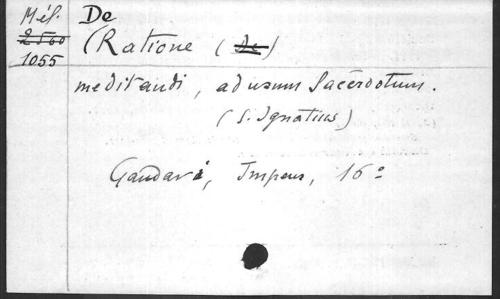 Més. De
2560 Ratione (de)
1055
meditandi, ad usum Sacerdotum.
(S. Ignatius)
Gandavi, Impens, 16º